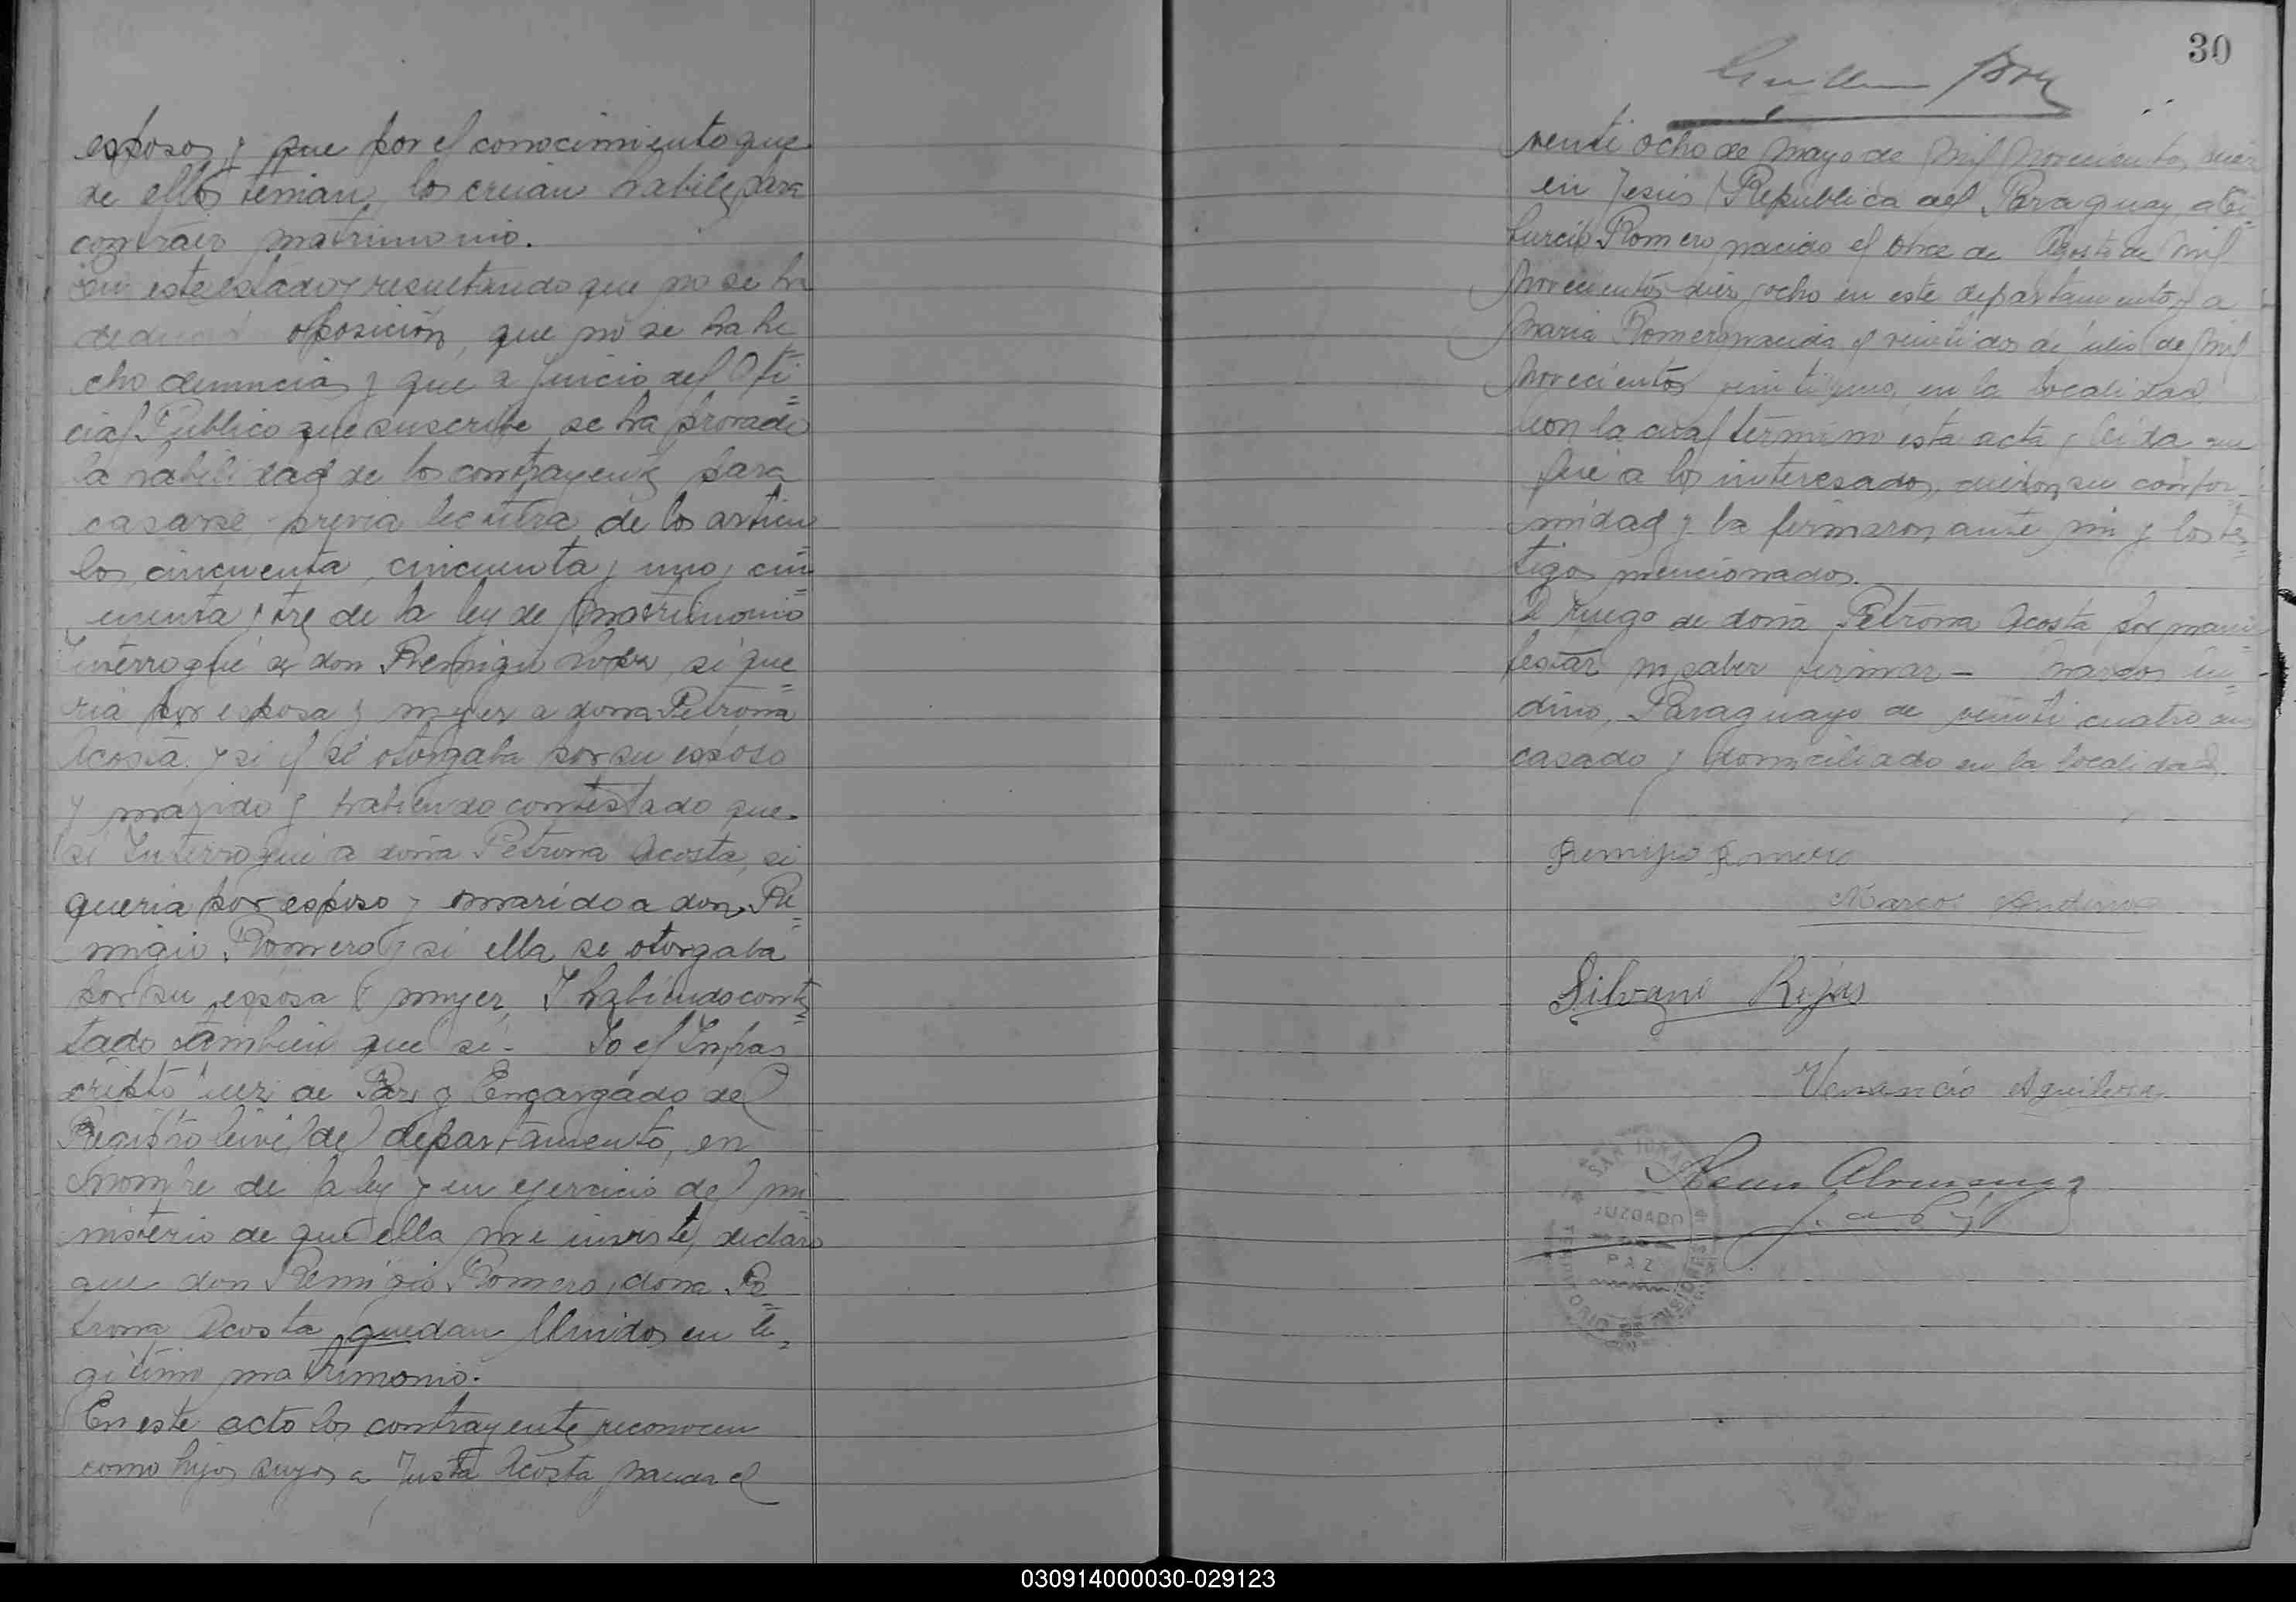 esposos, y que por el conocimiento que
de ellos tenian, los creian habiles para
contraer matrimonio.
En este estado y resultando que no se ha
deducido oposición, que no se ha he
cho denuncias y que a juicio del Ofi=
cial Público que suscribe se ha provado
la habilidad de los contrayentes para
casarse previa lectura de los articu
los cincuenta, cincuenta y uno y cin=
cuenta y tres de la ley de matrimonio
Interrogué a don Remigio si que=
ria por esposa y mujer a dona Petrona
Acosta y si él se otorgaba por su esposo
y marido y habiendo contestado que
si Interrogué a doña Petrona Acosta, si
queria por esposo y marido a don Re=
migio Romero y si ella se otorgaba
por su esposa y mujer, Y habiendo contes=
tado tambien que si - Yo el Infras
cripto Juez de Paz y Encargado del
Registro Civil del departamento, en
nombre de la ley y en ejercicio del mi
nisterio de que ella me inviste, declaro
que don Remigio Romero y dona Pe=
trona Acosta quedan Unidos en le=
gitimo matrimonio.
En este acto los contrayentes reconocen
como hijos suyos a Justa Acosta, nacida el
30
venti ocho de mayo de mil novecientos diez
en Jesús República del Paraguay, a Ti=
burcio Romero nacido el once de Agosto de mil
novecientos diez y ocho en este departamento y a
Maria Romero nacida el veintidos de julio de mil
novecientos veintiuno, en la localidad
Con la cual termino esta acta y leida que
fué a los interesados, dieron su confor=
midad y la firmaron ante mi y los tes=
tigos mencionados.
A ruego de doña Petrona Acosta por mani
festar no saber firmar - Marcos
Paraguayo de veinti cuatro años
casado y domiciliado en la localidad
Remigio Romero
Marcos
Silvano Rojas
Venancio Aguilera
J. de Paz
SAN IGNACIO
JUZGADO
DE
PAZ
TERRITORIO MISIONES
030914000030-029123